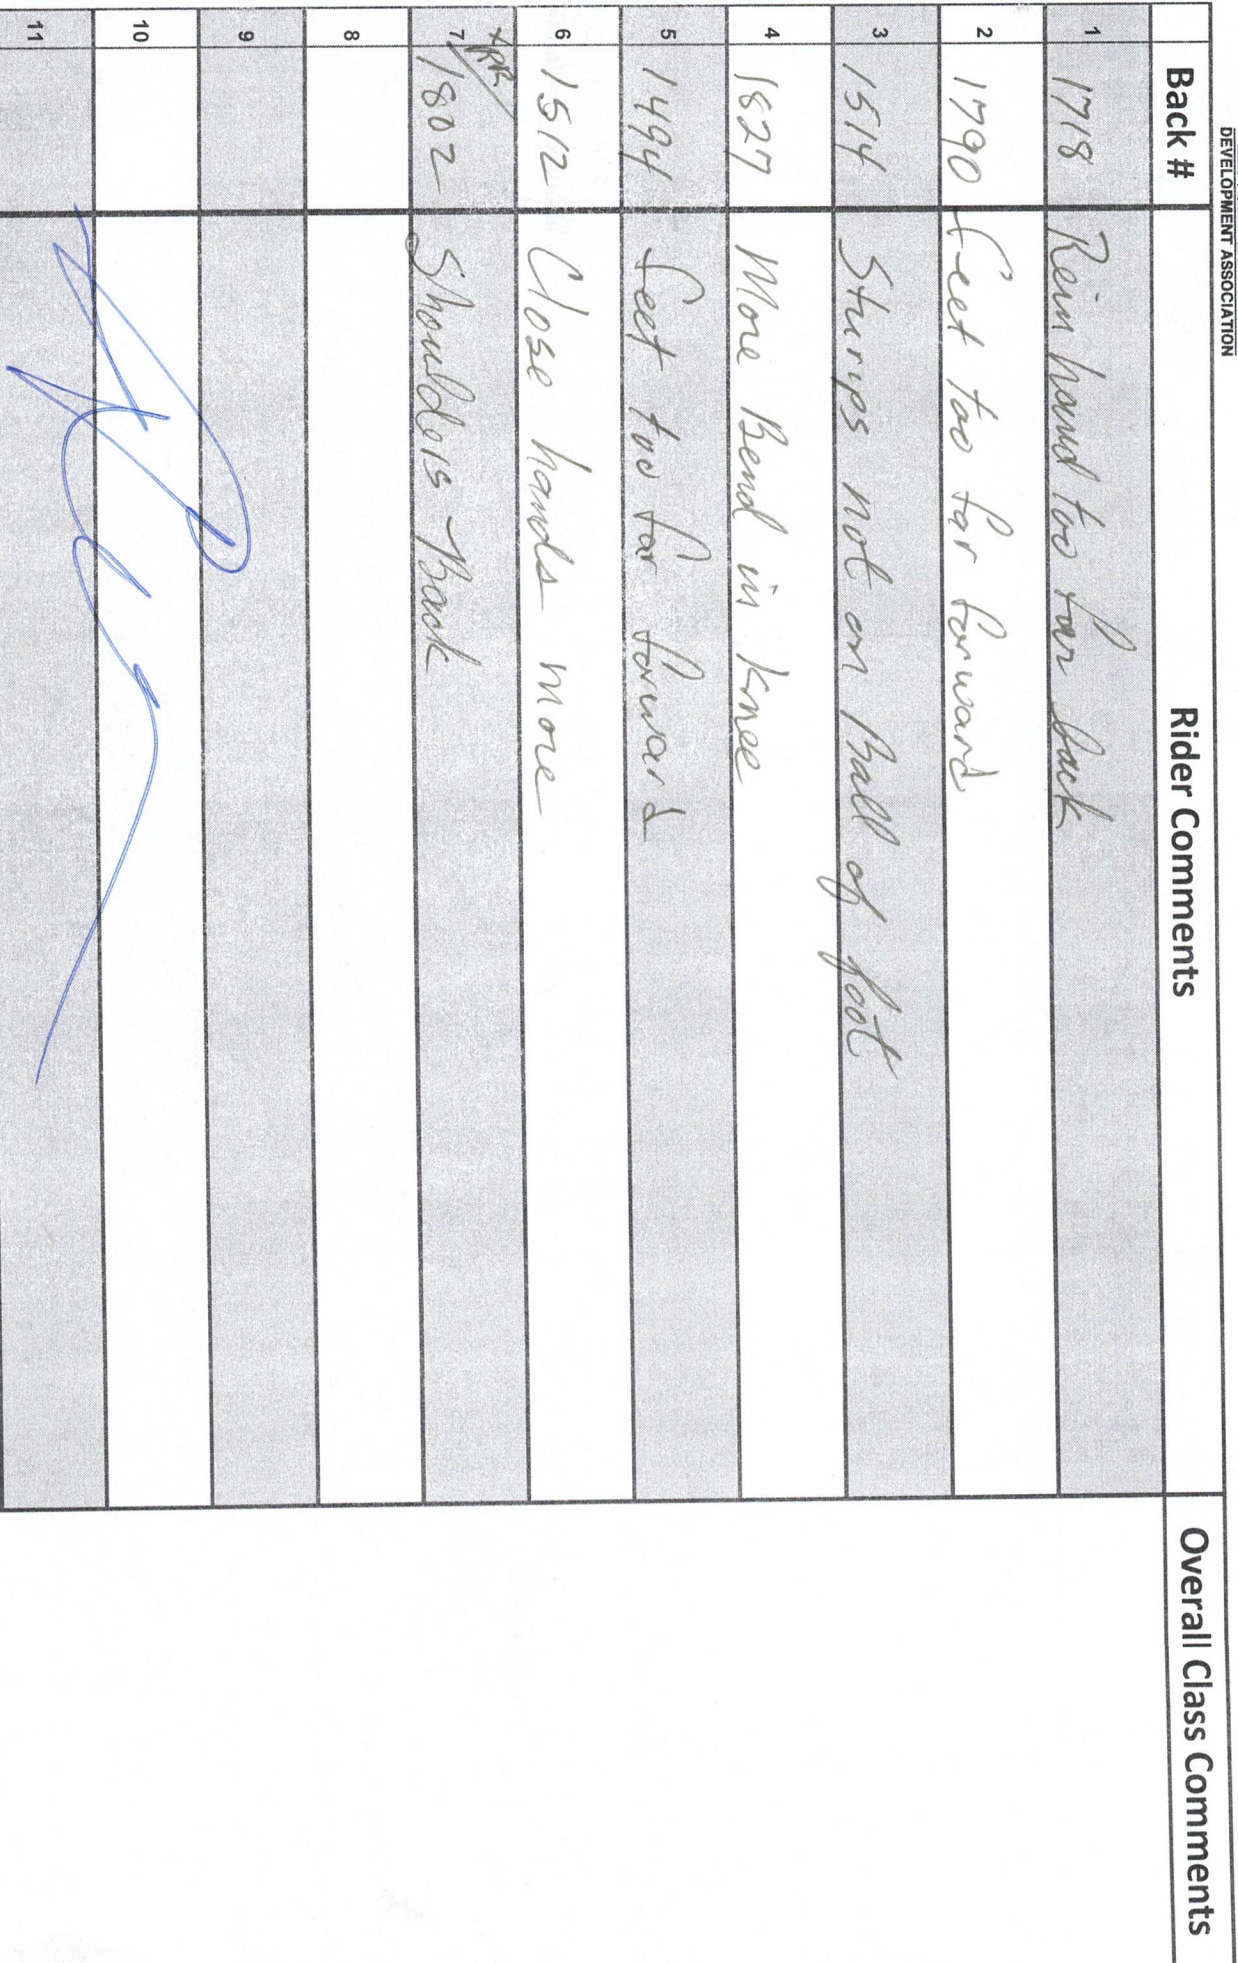 DEVELOPMENT ASSOCIATION
Back # Rider Comments Overall Class Comments
1 1718 Rein hand too far back
2 1790 feet too far forward
3 1514 Sturips not on Ball of foot
4 1827 More Bend in Knee
5 1494 feet too far forward
6 1512 Close hands more
7 1802 Shoulders Back
8
9
10
11